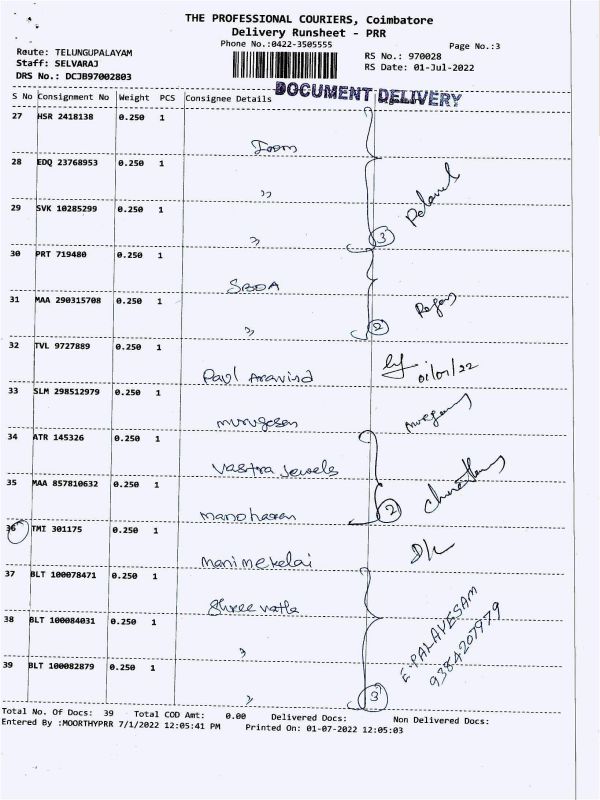 THE PROFESSIONAL COURIERS, Coimbatore
Delivery Runsheet - PRR
Phone No.:0422-3505555
Page No.:3
Route: TELUNGUPALAYAM
Staff: SELVARAJ
DRS No.: DCJB97002803
RS No.: 970028
RS Date: 01-Jul-2022
DOCUMENT DELIVERY
S No Consignment No Weight PCS Consignee Details
27 HSR 2418138 0.250 1
28 EDQ 23768953 0.250 1
"
29 SVK 10285299 0.250 1
" 3
30 PRT 719480 0.250 1
31 MAA 290315708 0.250 1
" 2
32 TVL 9727889 0.250 1
Paul Aravind 01/07/22
33 SLM 298512979 0.250 1
murugesan
34 ATR 145326 0.250 1
Vastra Jewels
35 MAA 857810632 0.250 1
manoharan 2
36 TMI 301175 0.250 1
manimekalai D/L
37 BLT 100078471 0.250 1
38 BLT 100084031 0.250 1
"
E.PALAVESAM
9384207979
39 BLT 100082879 0.250 1
" 3
Total No. Of Docs: 39 Total COD Amt: 0.00 Delivered Docs: Non Delivered Docs:
Entered By :MOORTHYPRR 7/1/2022 12:05:41 PM Printed On: 01-07-2022 12:05:03